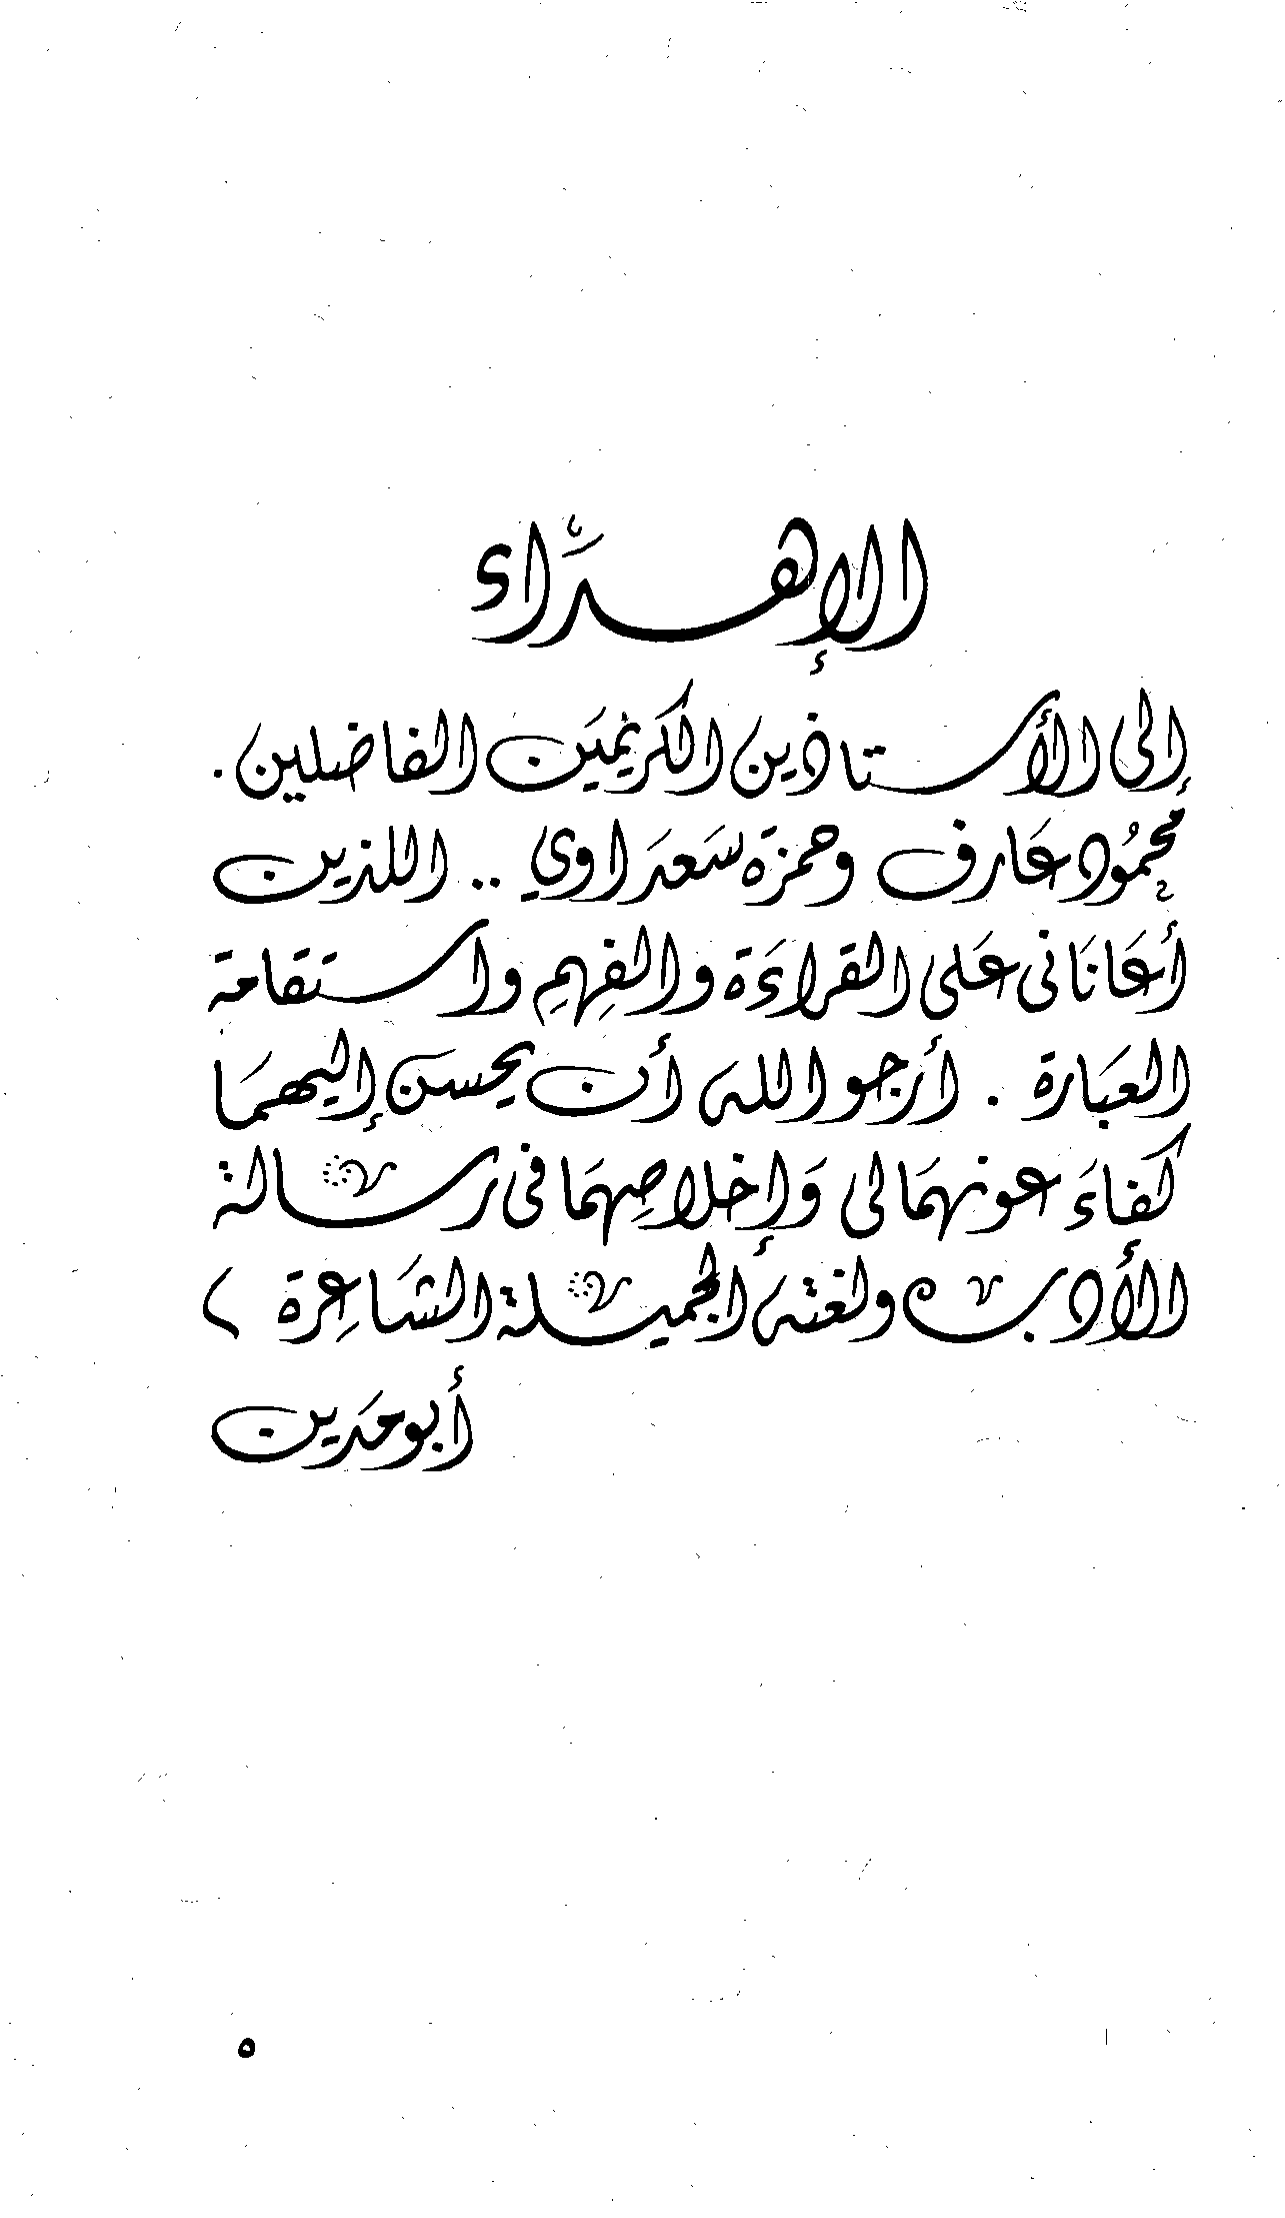 الإهداء
إلى الأستاذين الكريمين الفاضلين.
محمود عارف وحمزة سعداوي .. اللذين
أعانانى على القراءة والفهم واستقامة
العبارة . أرجو الله أن يحسن إليهما
كفاء عونهما لى وإخلاصهما فى رسالة
الأدب ولغته الجميلة الشاعرة ،
أبو مدين
٥